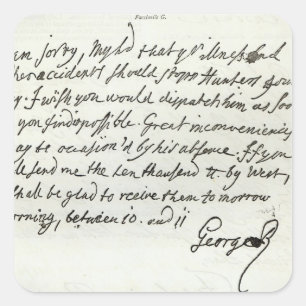 Facsimile G.
am sorry, My Ld that yr illness and
other accident should stopp Hunters journ
ey. I wish you would dispatch him as soo
you find possible. Great inconveniency
may be occasion'd by his absence. If you
send me the ten thousand tt. by West,
shall be glad to receive them to morrow
orning, between 10. and 11
George R